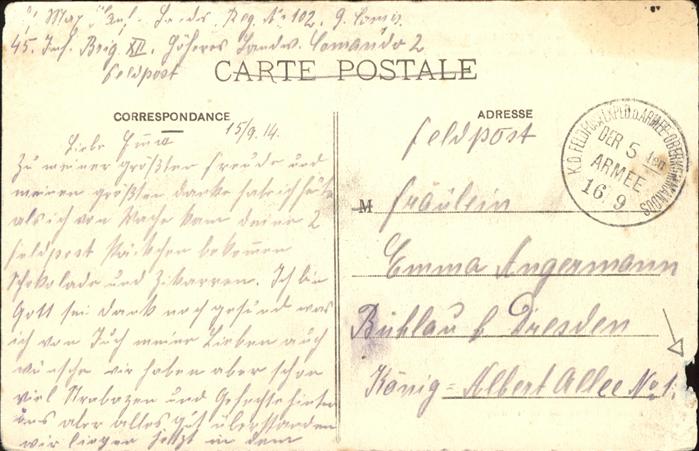 Max Inf. Landw. Reg. No 102, 9. Comp.
45. Inf. Brig XII. Höheres Landw. Comando 2
Feldpost
CARTE POSTALE
CORRESPONDANCE
15/9.14.
Liebe Emma
Zu meiner größten Freude und
meinen größten danke hab ich heute
als ich von Wache kam deine 2
Feldpost Päckchen bekommen
Schokolade und Zikarren. Ich bin
Gott sei dank noch gesund was
ich von Euch meine Lieben auch
wünsche wir haben aber schon
viel Strabazen und Gefechte hinter
uns aber alles gut überstanden
wir liegen jetzt in dem
ADRESSE
Feldpost
K.D. FELDPOSTEXPED. D. ARMEE-OBERKOMMANDOS
DER 5 ten
ARMEE
16 9
M Fräulein
Emma Angermann
Bühlau b Dresden
König-Albert Allee No 1.